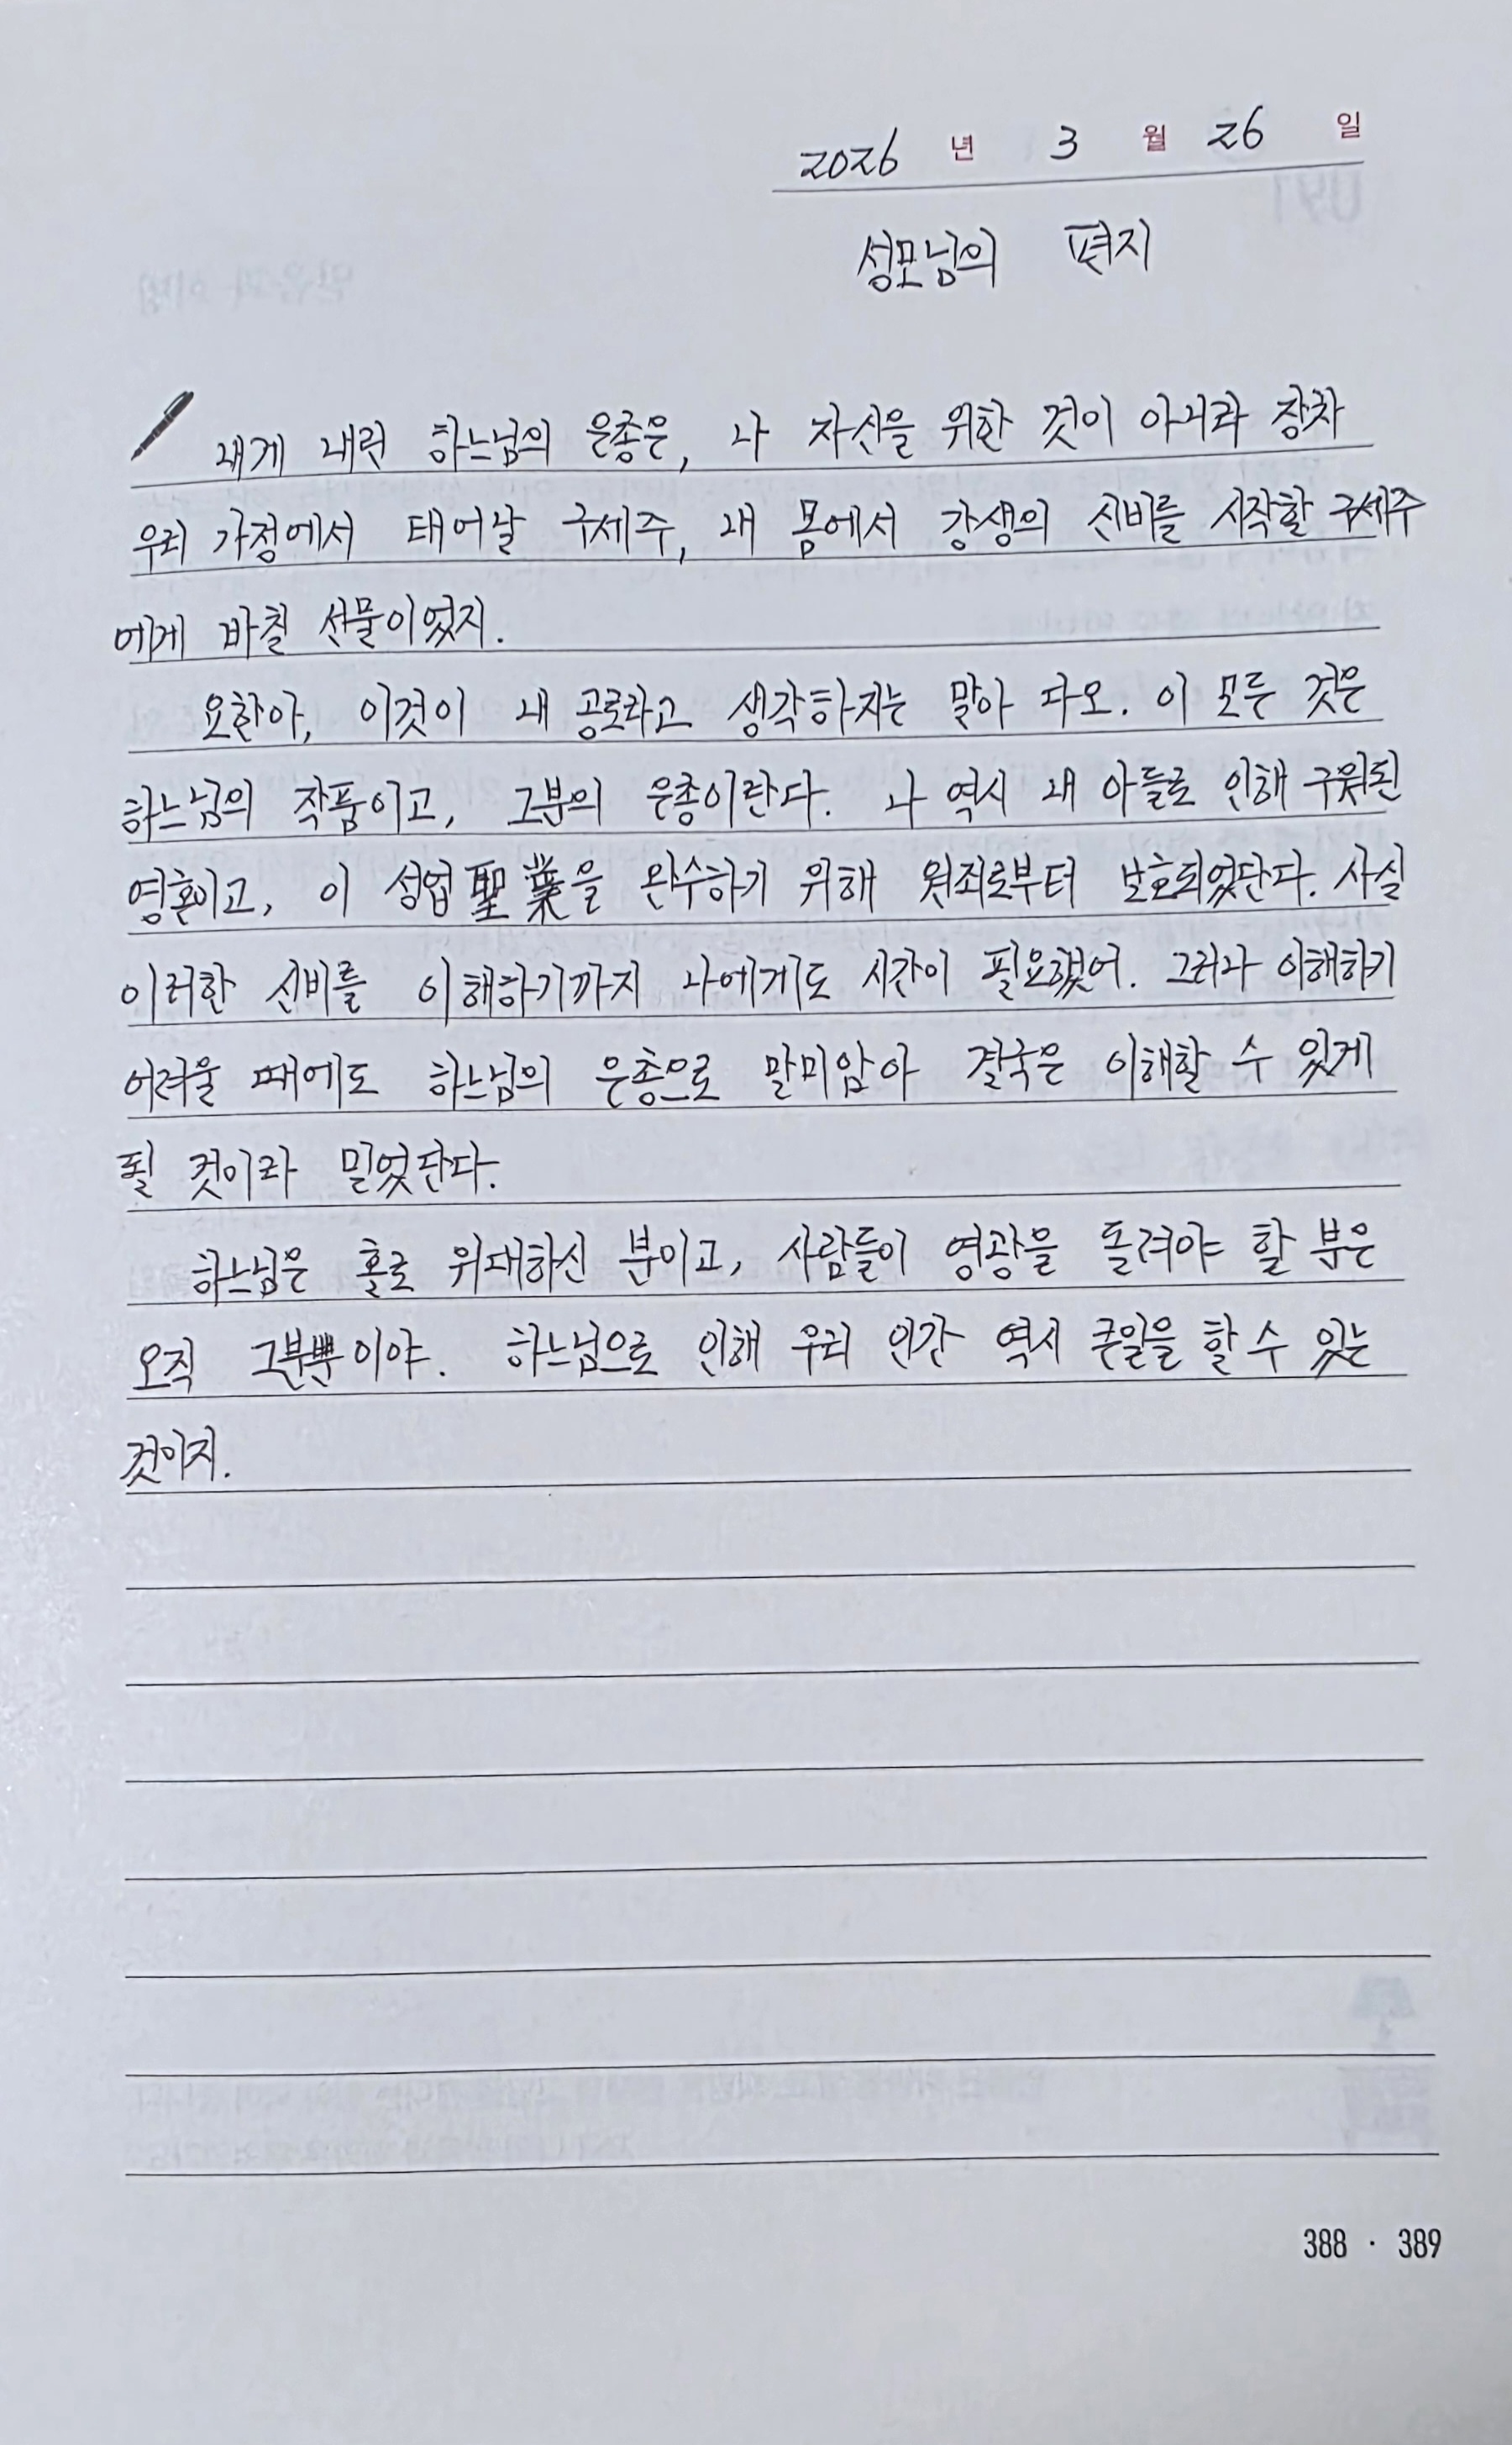 2026 년 3 월 26 일
성모님의 편지
내게 내린 하느님의 은총은, 나 자신을 위한 것이 아니라 장차
우리 가정에서 태어날 구세주, 내 몸에서 강생의 신비를 시작할 구세주
에게 바칠 선물이었지.
요한아, 이것이 내 공로라고 생각하지는 말아 다오. 이 모든 것은
하느님의 작품이고, 그분의 은총이란다. 나 역시 내 아들로 인해 구원된
영혼이고, 이 성업聖業을 완수하기 위해 원죄로부터 보호되었단다. 사실
이러한 신비를 이해하기까지 나에게도 시간이 필요했어. 그러나 이해하기
어려울 때에도 하느님의 은총으로 말미암아 결국은 이해할 수 있게
될 것이라 믿었단다.
하느님은 홀로 위대하신 분이고, 사람들이 영광을 돌려야 할 분은
오직 그분뿐이야. 하느님으로 인해 우리 인간 역시 큰일을 할 수 있는
것이지.
388 · 389